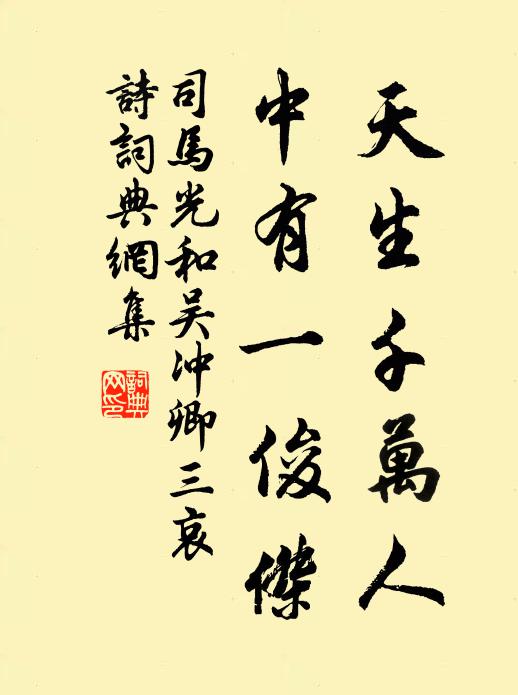 天生千萬人
中有一俊傑
司馬光和吴冲卿三哀
詩詞典網集
詞典
网印